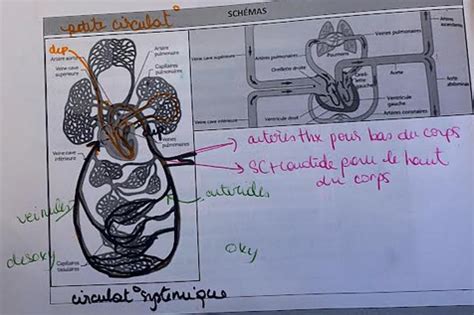 SCHÉMAS
petite circulat°
dep
Artère aorte
Veine cave supérieure
Artère pulmonaire
Capillaires pulmonaires
Veines pulmonaires
Veine cave inférieure
Capillaires tissulaires
Veine cave supérieure
Oreillette droite
Veine cave inférieure
Ventricule droit
Veines pulmonaires
Artère pulmonaire
Oreillette gauche
Aorte
Ventricule gauche
Artères coronaires
→ artères thx pour bas du corps
→ SC + carotide pour le haut
du corps
veinules
artérioles
desoxy
oxy
circulat° systémique